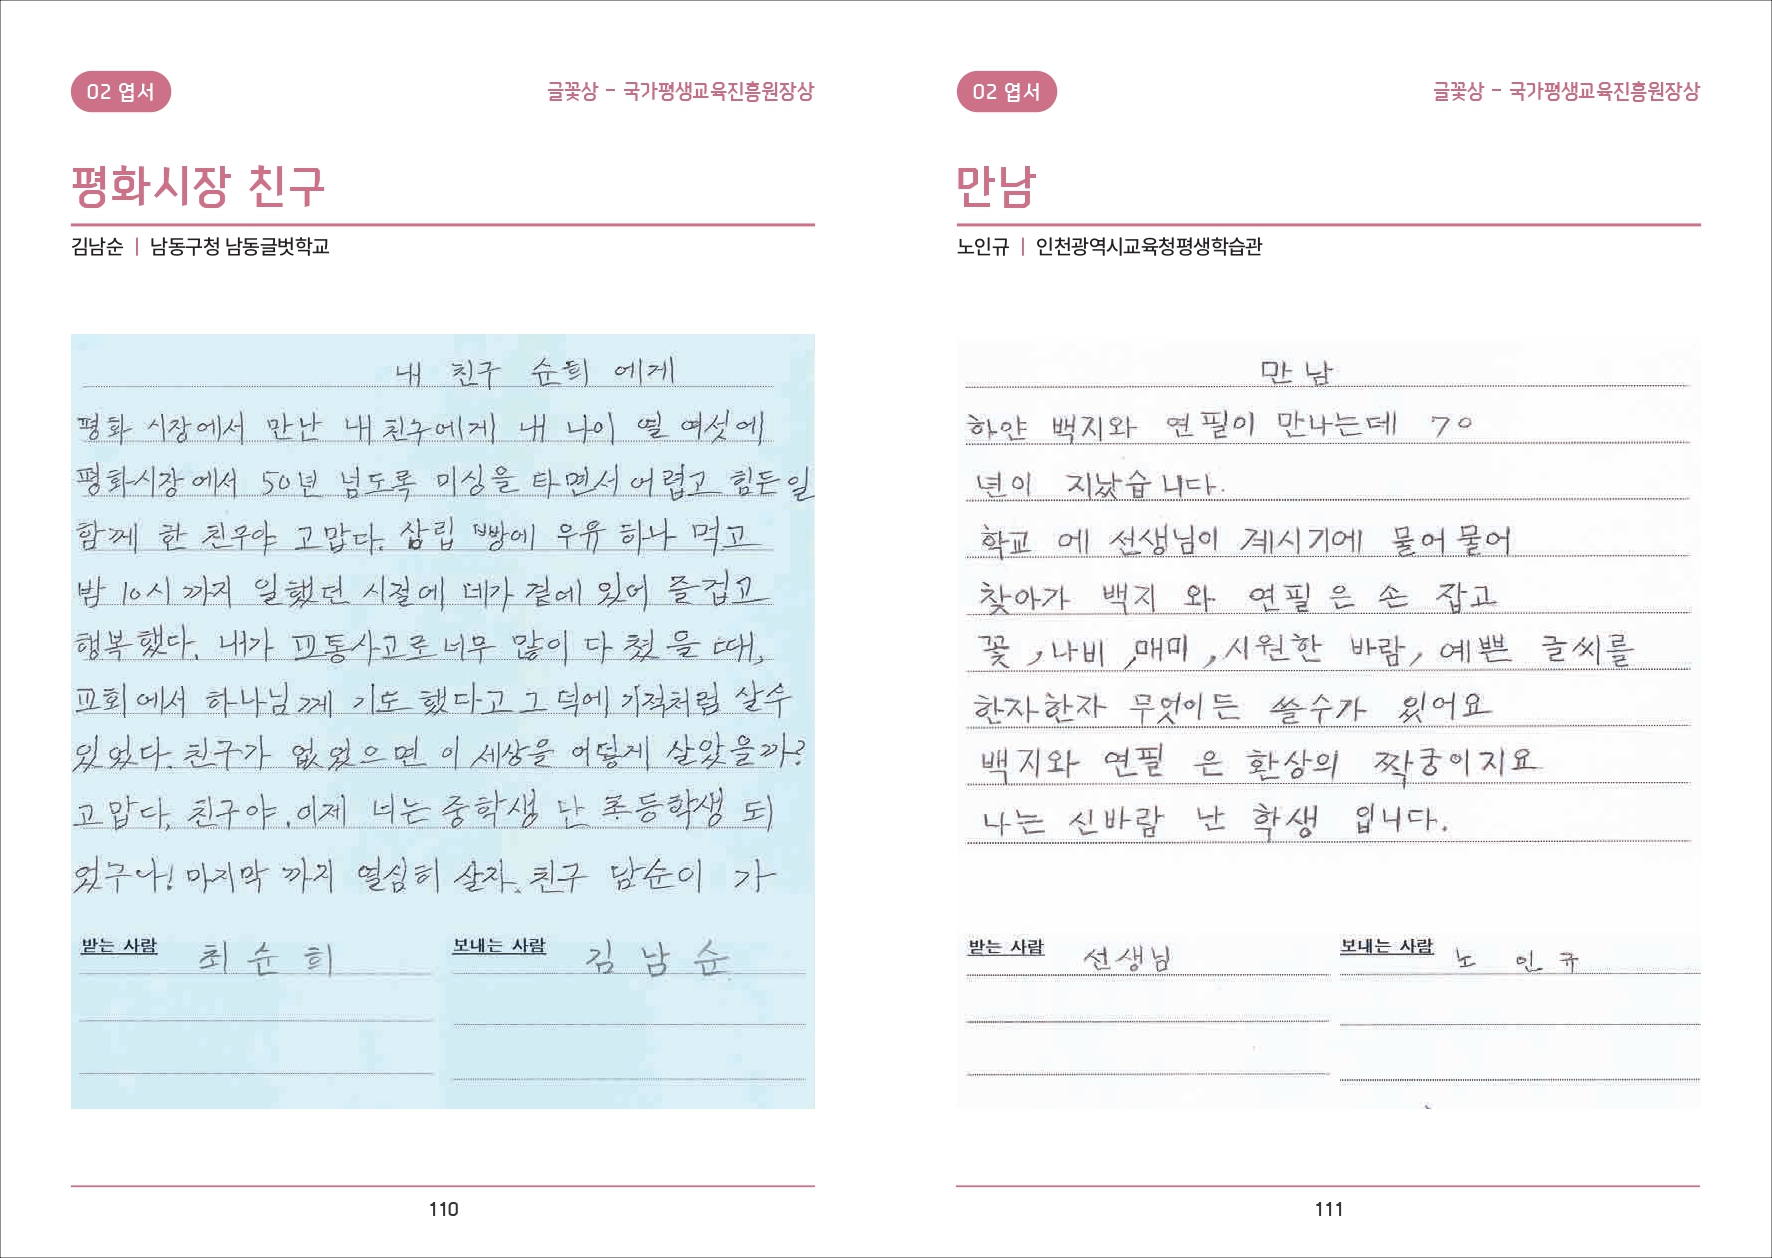 02 엽서
글꽃상 - 국가평생교육진흥원장상
평화시장 친구
김남순 | 남동구청 남동글벗학교
내 친구 순희 에게
평화 시장에서 만난 내 친구에게 내 나이 열 여섯에
평화시장에서 50년 넘도록 미싱을 타면서 어렵고 힘든일
함께 한 친구야 고맙다. 삼립 빵에 우유 하나 먹고
밤 10시 까지 일했던 시절에 네가 곁에 있어 즐겁고
행복했다. 내가 교통사고로 너무 많이 다 쳤 을 때,
교회에서 하나님께 기도 했다고 그 덕에 기적처럼 살수
있었다. 친구가 없었으면 이 세상을 어떻게 살았을까?
고맙다, 친구야, 이제 너는 중학생 난 초등학생 되
었구나! 마지막 까지 열심히 살자. 친구 남순이 가
받는 사람 최 순 희
보내는 사람 김 남 순
110
02 엽서
글꽃상 - 국가평생교육진흥원장상
만남
노인규 | 인천광역시교육청평생학습관
만 남
하얀 백지와 연필이 만나는데 70
년이 지났습니다.
학교 에 선생님이 계시기에 물어물어
찾아가 백지 와 연필 은 손 잡고
꽃, 나비, 매미, 시원한 바람, 예쁜 글씨를
한자한자 무엇이든 쓸수가 있어요
백지와 연필 은 환상의 짝궁이지요
나는 신바람 난 학생 입니다.
받는 사람 선생님
보내는 사람 노 인 규
111